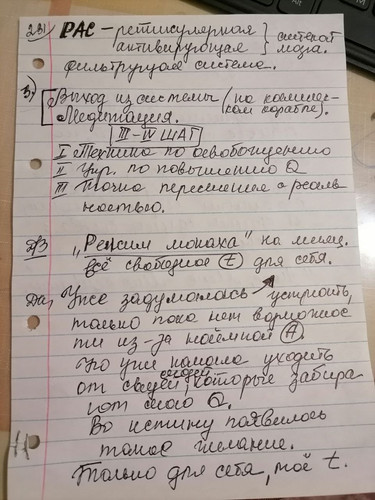 231 РАС - ретикулярная
активирующая } система
мозга.
Фильтрующая система.
3) Выход из системы (на космичес-
ком корабле).
Медитация.
III-IV ШАГ
I Техника по освобождению
II Упр. по повышению Q
III Точка пересечения с реаль
ностью.
ДЗ "Режим монаха" на месяц.
Всё свободное t для себя.
Да, Уже задумалась устроить,
только пока нет возможнос
ти из-за наёмной А.
Но уже начала уходить
от людей, которые забира
ют моего Q.
Во истину появилось
такое желание.
Только для себя, моё t.